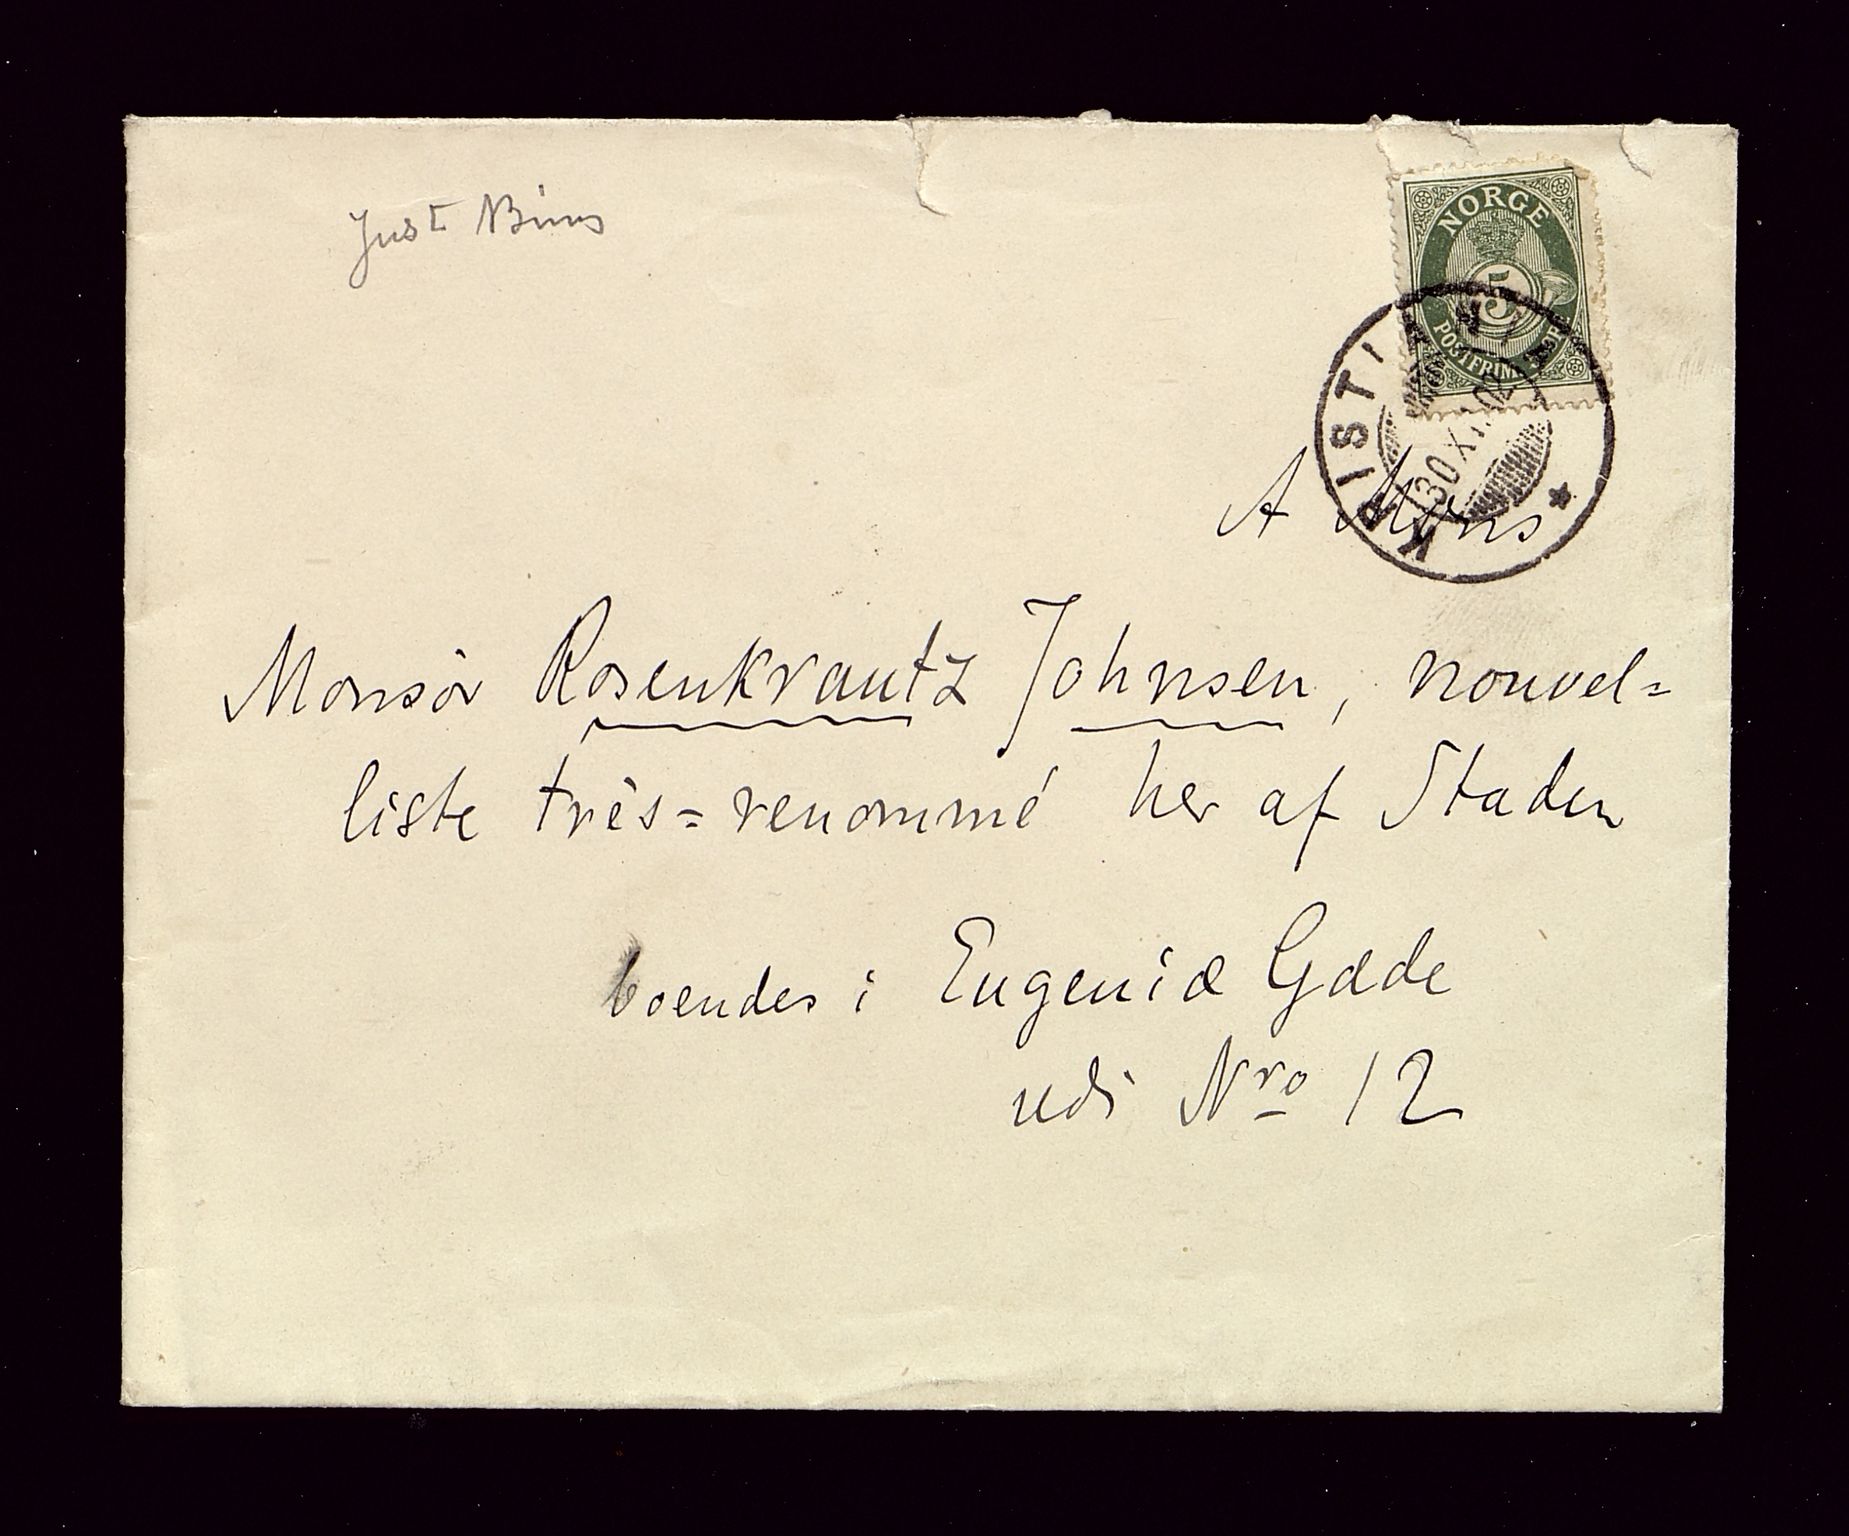 Just Bing
NORGE
5
POSTFRIM
KRISTIANIA
30 XI 02
A Mons
Monsör Rosenkrantz Johnsen, nouvel=
liste très=renommé her af Staden
boendes i Eugeniæ Gade
udi Nro 12